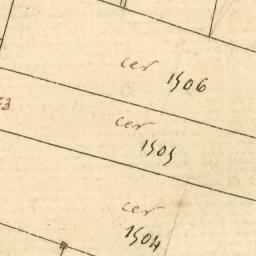 cer
1506
cer
1505
cer
1504